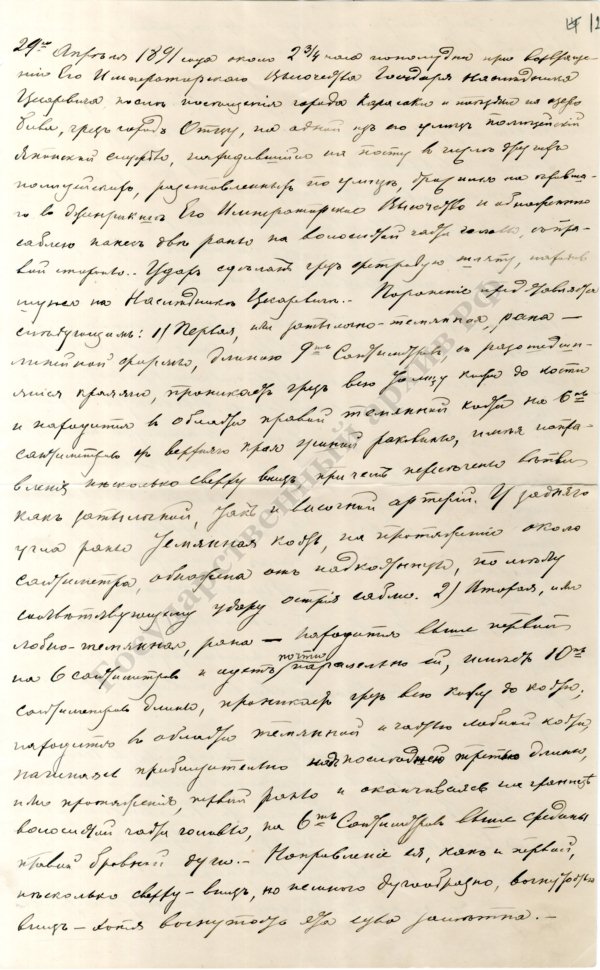 12
29го Апреля 1891 года около 2 3/4 часа пополудни при возвраще-
нiи Его Императорскаго Высочества Государя Наследника
Цесаревича, после посещенiя города Карасаки и поездки на озеро
Бива, чрезъ городъ Отцу, на одной изъ его улицъ полицейскiй
Японской службы, находившiйся на посту в числе другихъ
полицейскихъ, разставленныхъ по улице, бросился на ехавша-
го в дженрикше Его Императорское Высочество и обнаженною
саблею нанесъ две раны на волосистой части головы, съ пра-
вой стороны. Ударъ сделанъ чрезъ фетровую шляпу,
на Наследнике Цесаревиче. Пораненiе представляется
следующимъ: 1) Первая, или затылочно-теменная, рана —
линейной формы, длиною 9ть Сантиметровъ, съ разошедши-
мися краями, проникаетъ чрезъ всю толщу кожи до кости
и находится в области правой теменной кости на 6ть
сантиметровъ отъ верхняго края ушной раковины, имея направ-
ленiе несколько сверху внизъ, причемъ пересечены ветви
какъ затылочной, такъ и височной артерiй. У задняго
угла раны теменная кость, на протяженiи около
сантиметра, обнажена отъ надкостницы, по месту
соответствующему удару острiя сабли. 2) Вторая, или
лобно-теменная, рана — находится выше первой
на 6 сантиметровъ и идетъ почти параллельно ей, имеетъ 10ть
сантиметровъ длины, проникаетъ чрезъ всю кожу до кости;
находится в области теменной и частью лобной кости,
начинаясь приблизительно надъ последнею третью длины,
или протяженiя, первой раны и оканчиваясь на границе
волосистой части головы, на 6ть Сантиметровъ выше средины
правой бровной дуги. — Направленiе ея, какъ и первой,
несколько сверху-внизъ, но немного дугообразно, вогнутостью
внизъ — хотя вогнутость эта едва заметна. —
Государственный архив РФ